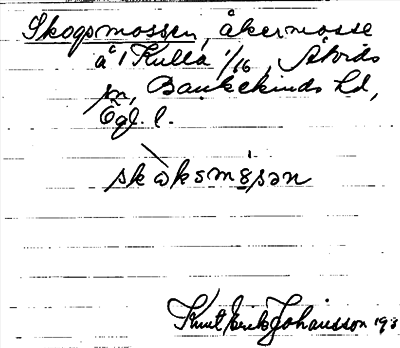 Skogsmossen, åkermosse
å 1 Kulla 1/16, Åtvids
sn, Bankekinds hd,
Ögl. l.
skɷksmåsən
Knut Erik Johansson 193